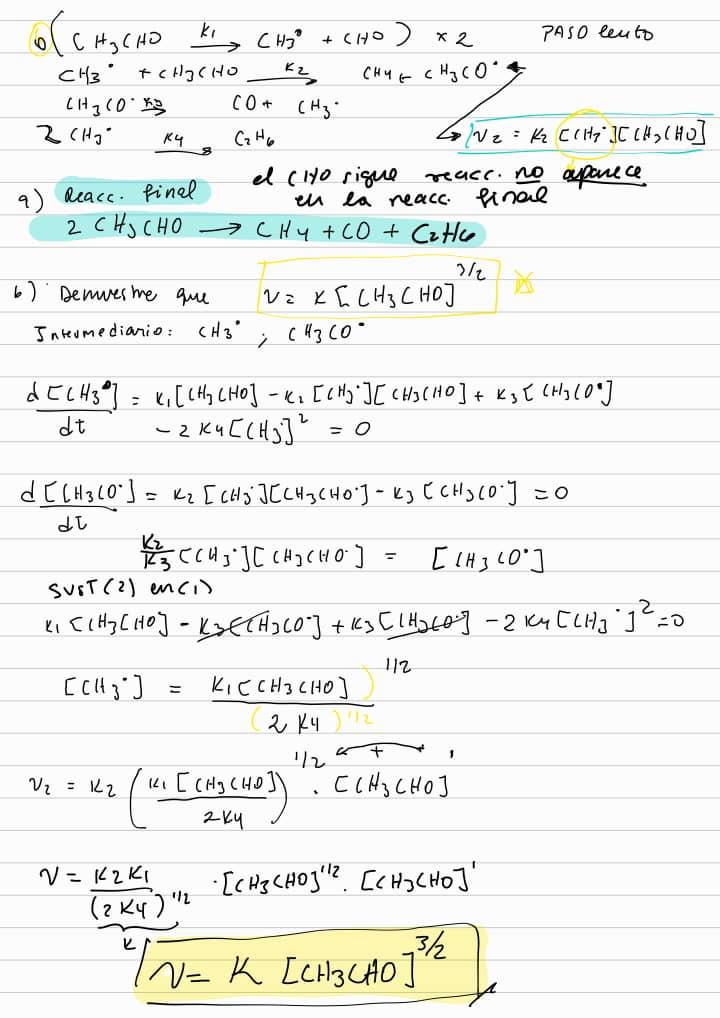 6( CH3CHO K1→ CH3• + CHO ) x 2 PASO lento
CH3• + CH3CHO K2→ CH4 + CH3CO•
CH3CO• K3→ CO + CH3•
2 CH3• K4→ C2H6 V2 = K2 [CH3•][CH3CHO]
el CHO sigue reacc. no aparece
en la reacc. final
a) Reacc. final
2 CH3CHO → CH4 + CO + C2H6
b) Demuestre que V = K [CH3CHO]^3/2
Intermediario: CH3• ; CH3CO•
d[CH3•]/dt = K1[CH3CHO] - K2 [CH3•][CH3CHO] + K3 [CH3CO•]
- 2 K4 [CH3•]^2 = 0
d[CH3CO•]/dt = K2 [CH3•][CH3CHO•] - K3 [CH3CO•] = 0
K2/K3 [CH3•][CH3CHO•] = [CH3CO•]
SUST (2) en (1)
K1 [CH3CHO] - K3[CH3CO•] + K3[CH3CO•] - 2 K4 [CH3•]^2 = 0
[CH3•] = K1[CH3CHO])^1/2 / (2 K4)^1/2
V2 = K2 (K1 [CH3CHO] / 2K4)^1/2 . [CH3CHO]^1
+
V = K2K1 / (2K4)^1/2 · [CH3CHO]^1/2 . [CH3CHO]^1
K
V = K [CH3CHO]^3/2